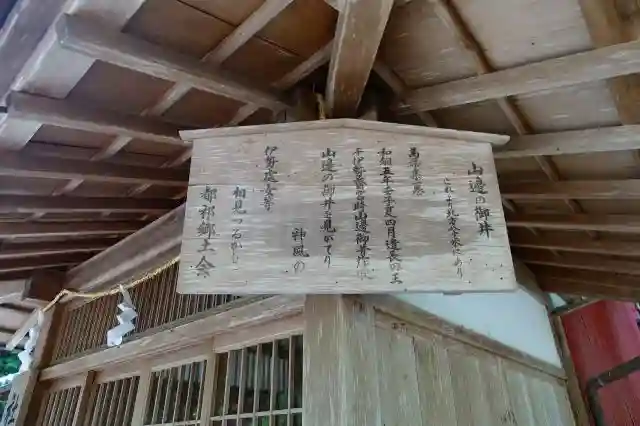 山邊の御井
これより北方
萬葉集巻一
和銅五年壬子夏四月遣長田王
于伊勢齋宮時山邊御井
山邊の御井を見がてり
神風の
伊勢處女等
相見つるかも
都祁郷土会